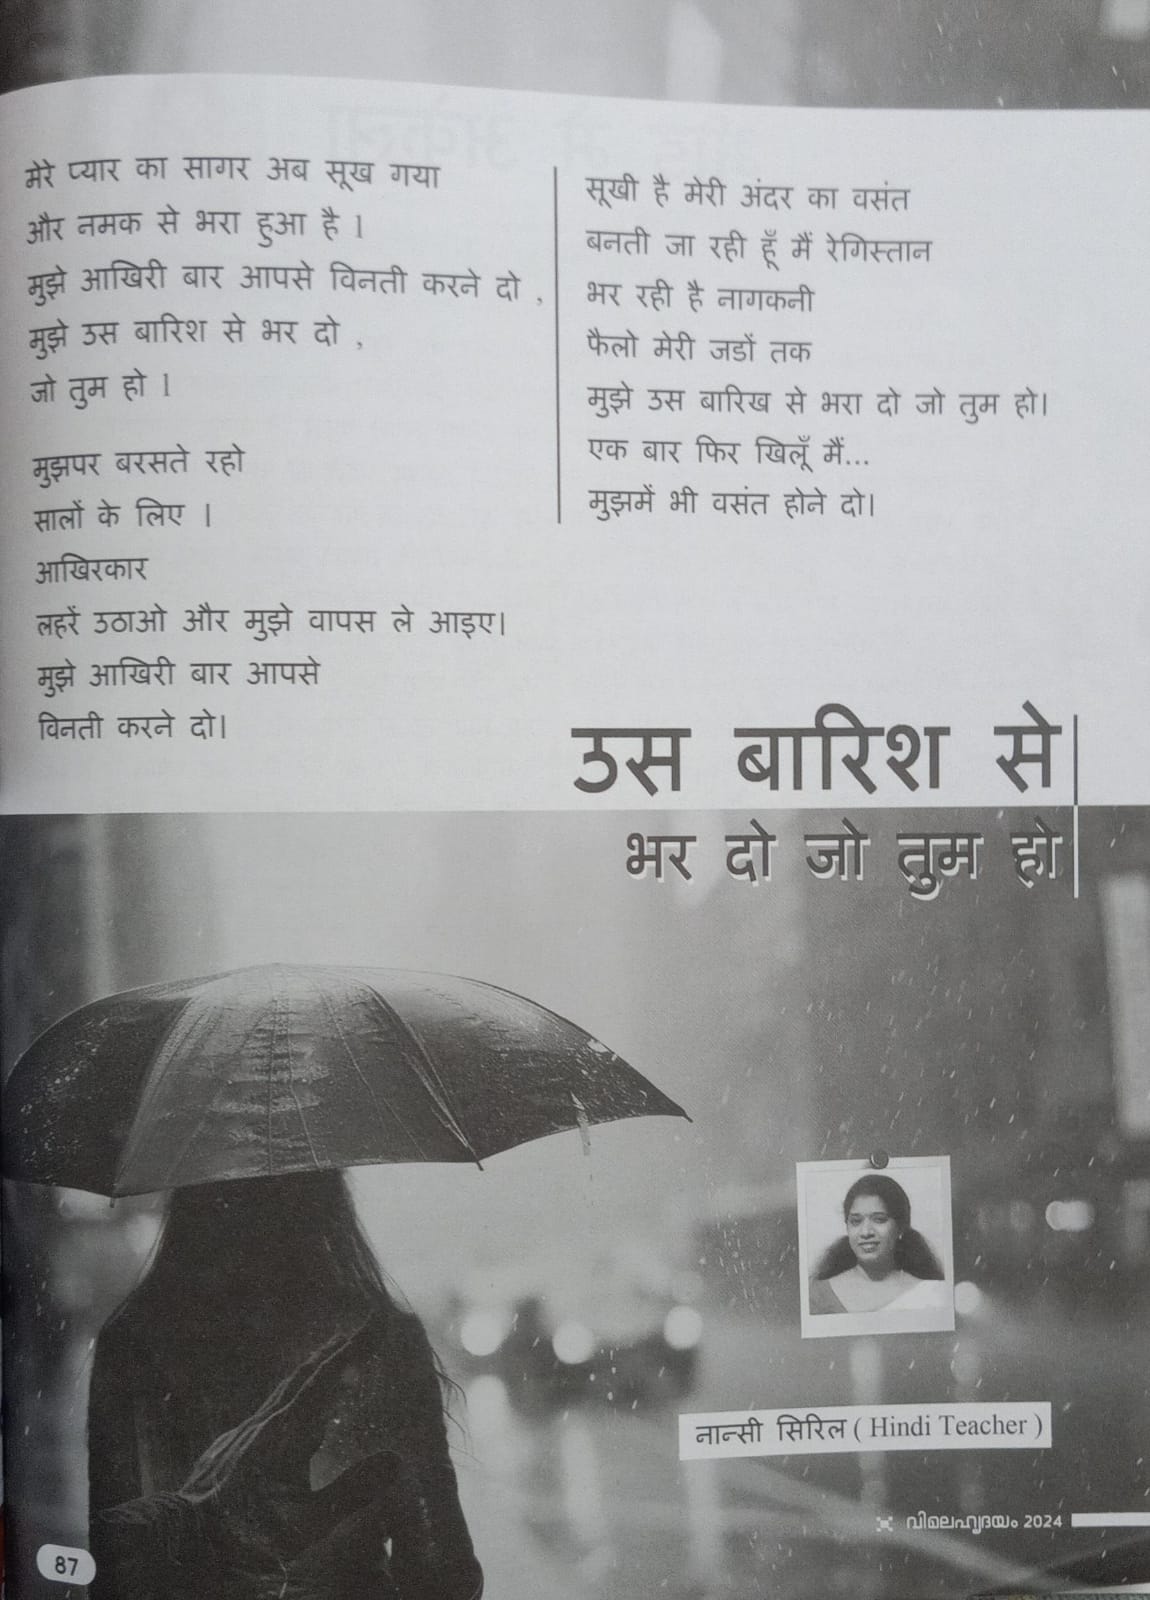 मेरे प्यार का सागर अब सूख गया
और नमक से भरा हुआ है ।
मुझे आखिरी बार आपसे विनती करने दो ,
मुझे उस बारिश से भर दो ,
जो तुम हो ।
मुझपर बरसते रहो
सालों के लिए ।
आखिरकार
लहरें उठाओ और मुझे वापस ले आइए।
मुझे आखिरी बार आपसे
विनती करने दो।
सूखी है मेरी अंदर का वसंत
बनती जा रही हूँ मैं रेगिस्तान
भर रही है नागकनी
फैलो मेरी जडों तक
मुझे उस बारिख से भरा दो जो तुम हो।
एक बार फिर खिलूँ मैं...
मुझमें भी वसंत होने दो।
उस बारिश से
भर दो जो तुम हो
नान्सी सिरिल ( Hindi Teacher )
വിമലഹൃദയം 2024
87